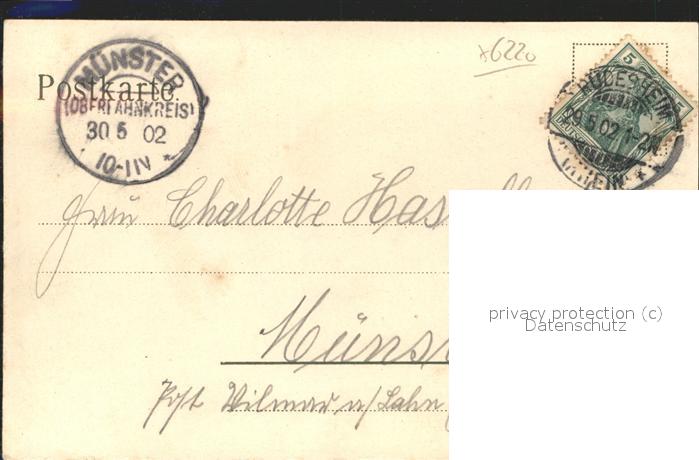 Postkarte.
MÜNSTER
(OBERLAHNKREIS)
30 5 02
10-11V
*6220
5 5
RÜDESHEIM
29.5.02. 1-2N
RHEIN
Frau Charlotte Has
Müns
Post Vilmar a/Lahn
privacy protection (c)
Datenschutz